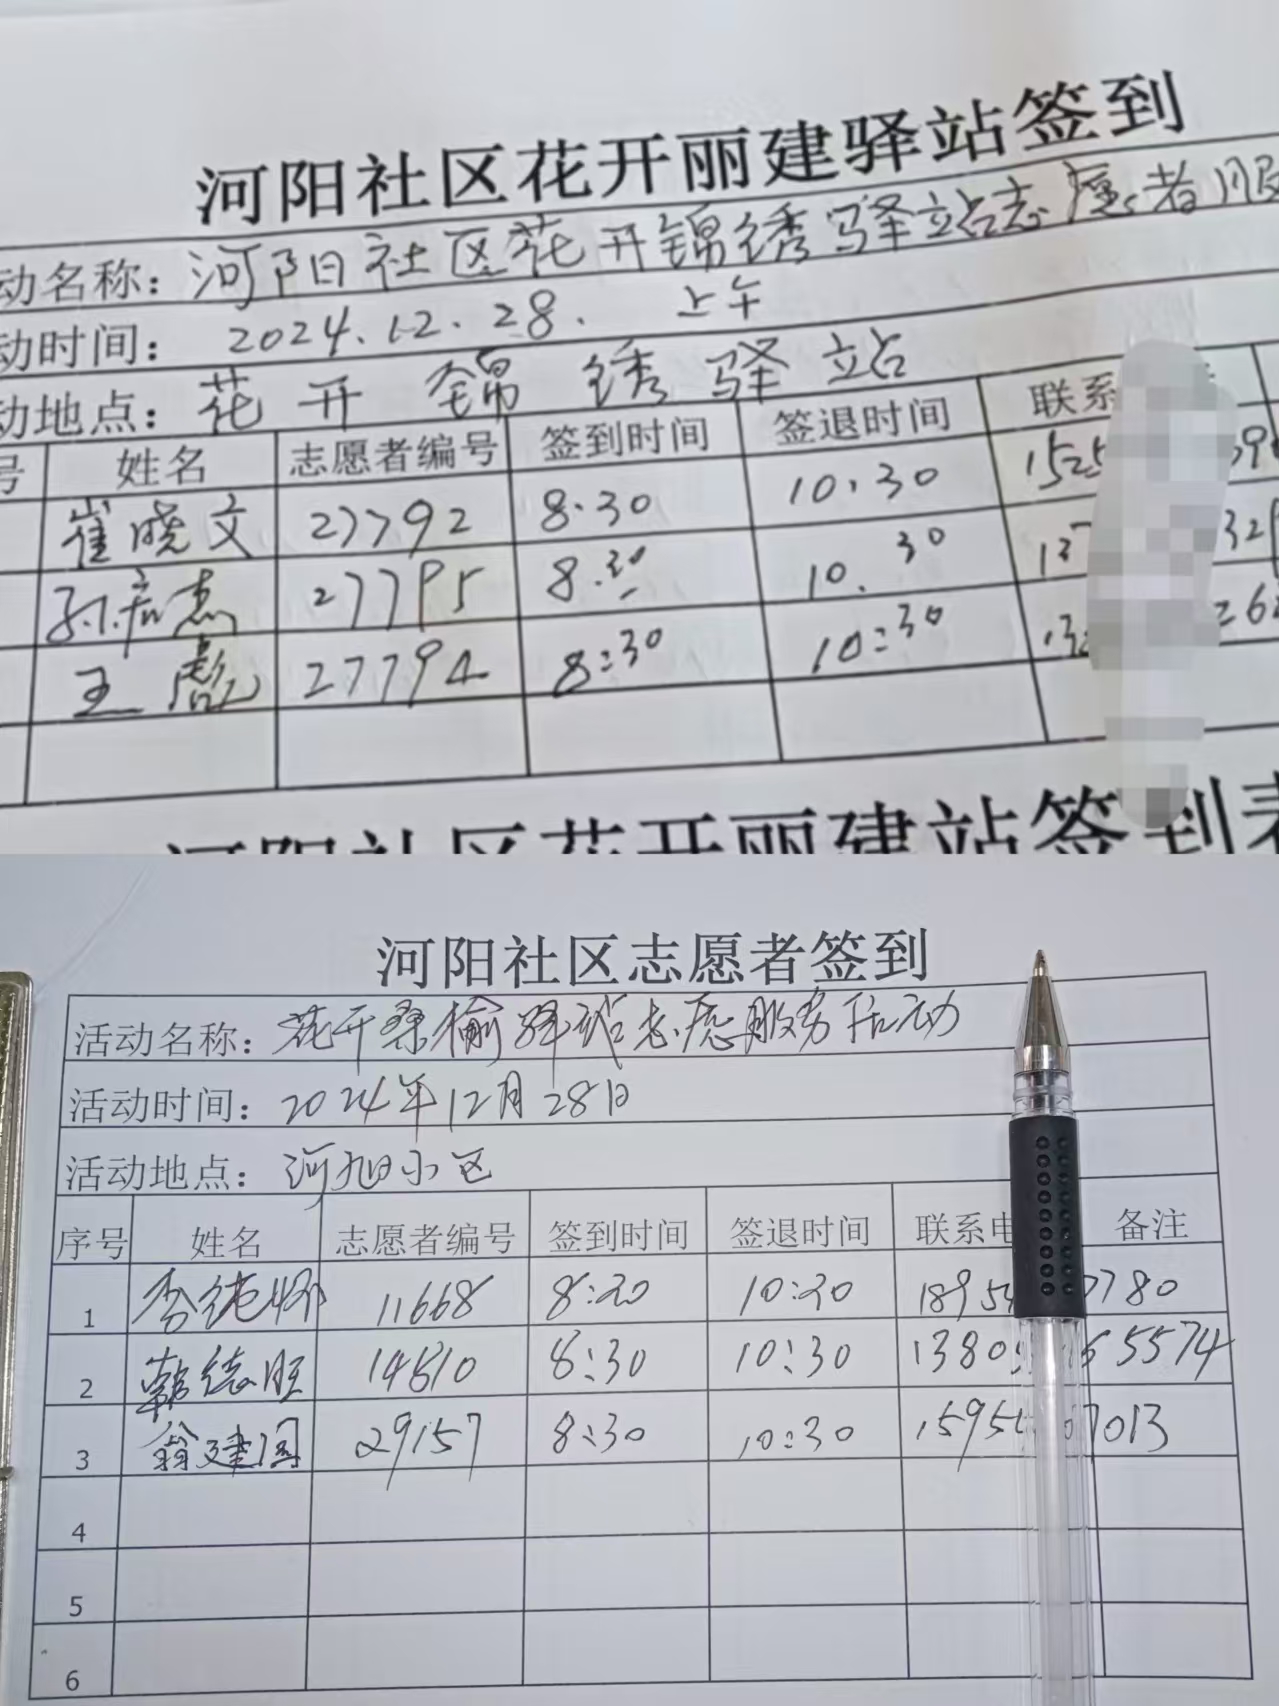 河阳社区花开丽建驿站签到
动名称：河阳社区花开锦绣驿站志愿者服
动时间： 2024.12.28. 上午
动地点：花开锦绣驿站
号 姓名 志愿者编号 签到时间 签退时间 联系
崔晓文 27792 8.30 10.30 152
27795 8.30 10.30
王彪 27794 8:30 10:30
河阳社区花开丽建驿站签到表
河阳社区志愿者签到
活动名称：花开桑榆驿站志愿服务活动
活动时间：2024年12月28日
活动地点：河旭小区
序号 姓名 志愿者编号 签到时间 签退时间 联系电 备注
1 11668 8:30 10:30 1895 780
2 韩德胜 14810 8:30 10:30 1380 5574
3 翁建国 29157 8:30 10:30 1595 7013
4
5
6